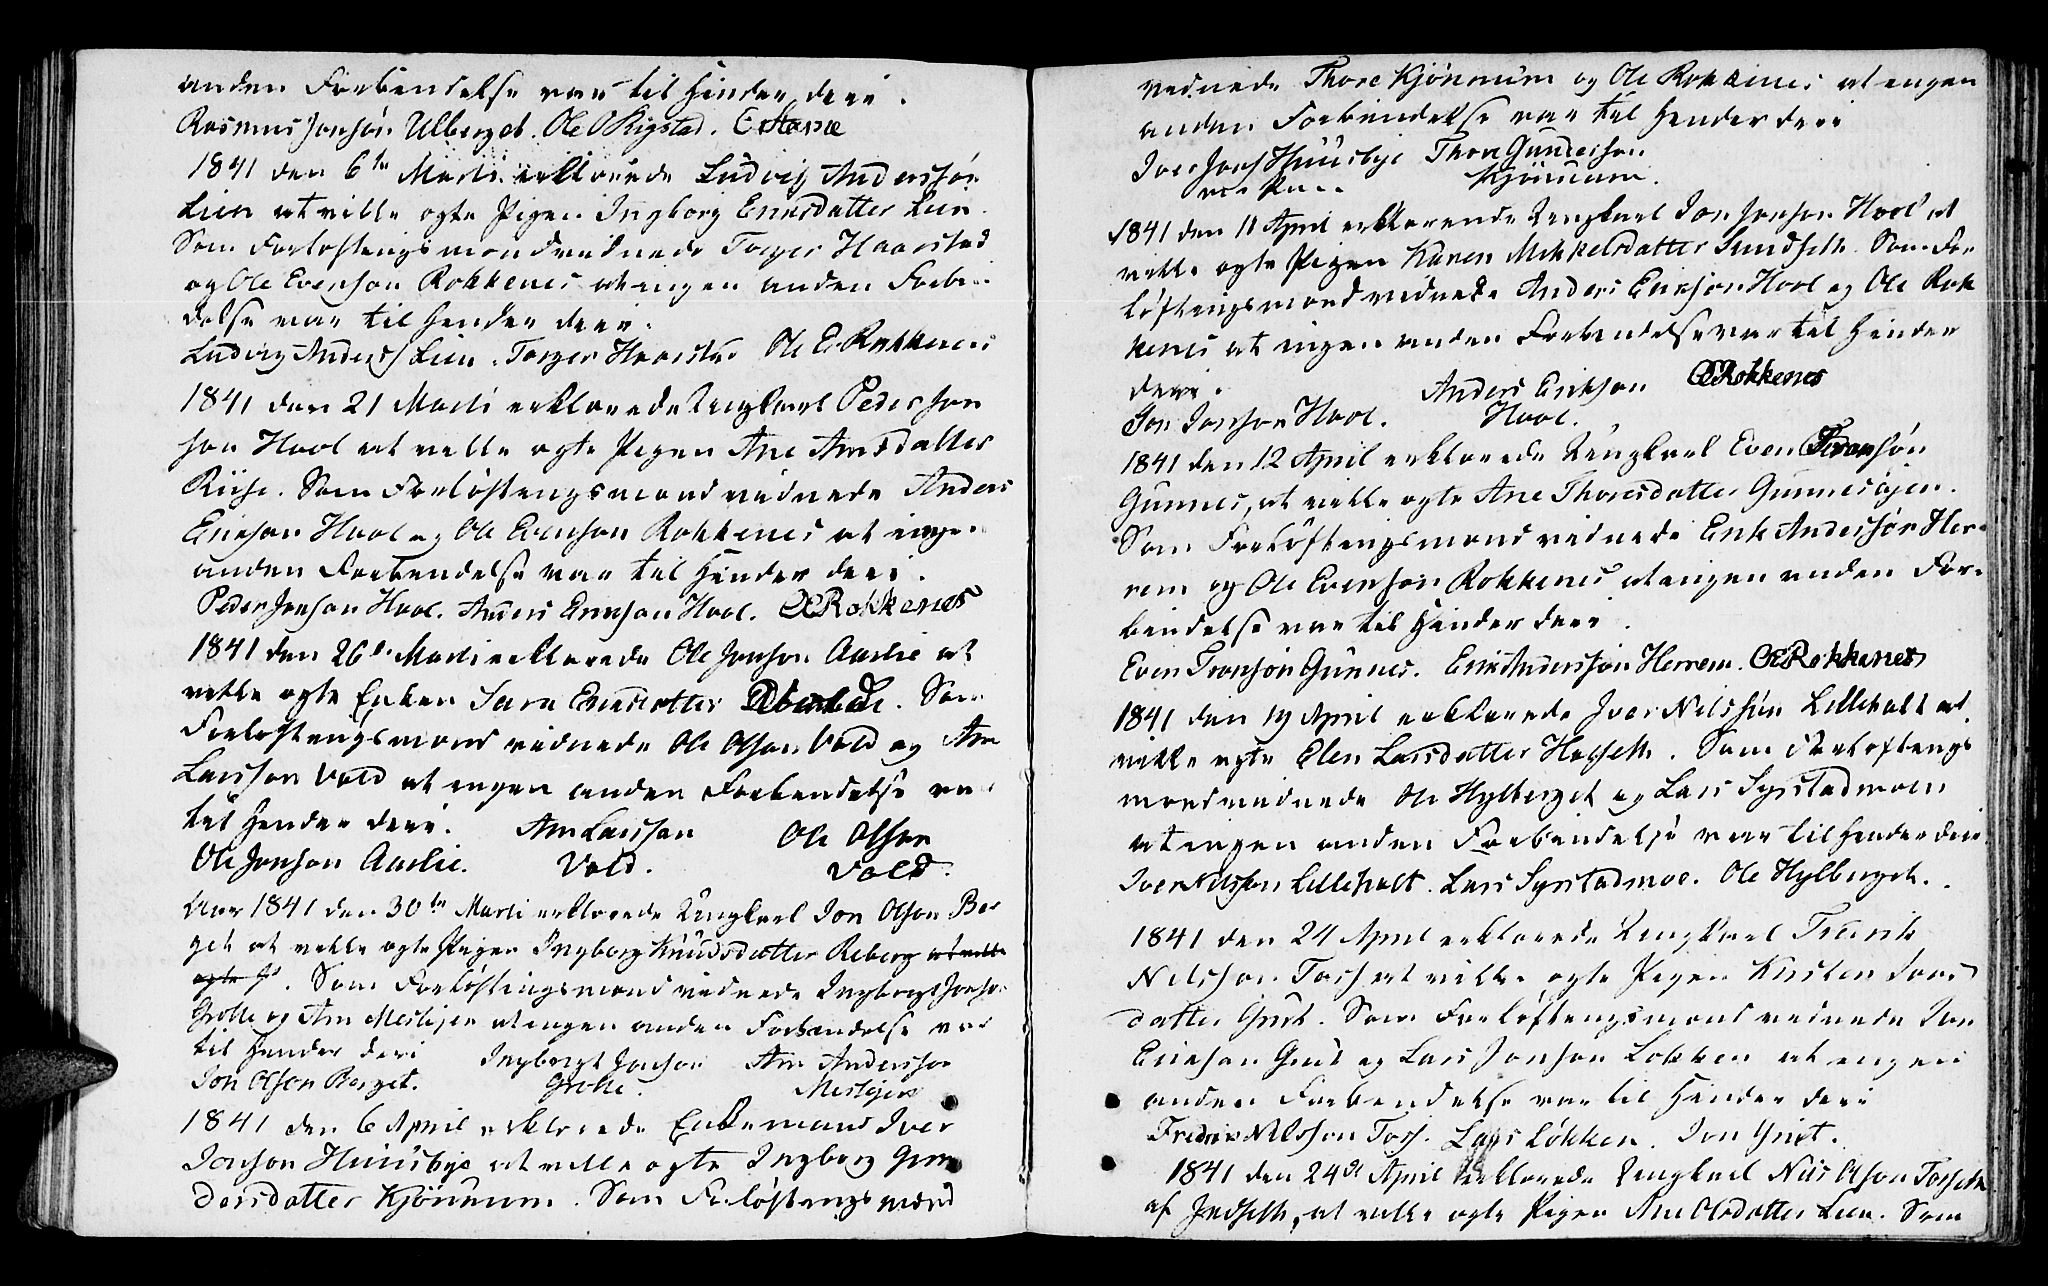 anden Forbendelse var til Hinder deri.
Rasmus Jonsøn Ulberget. Ole O Rigstad.
1841 den 6te Marti erklærede Ludvig Andersøn
Lien at ville ogte Pigen Ingborg Ericsdatter Lien.
Som Forloftengsmænd vidnede Torger Haarstad
og Ole Evenson Rokkenes at ingen anden Forben
delse var til Hender deri.
Ludvig Anders Lien. Torger Haarstad Ole E Rokkenes
1841 den 21 Marti erklærede Ungkarl Peder Jon
son Hool at velle ogte Pigen Ane Arnsdatter
Riise. Som Forløftengsmænd vidnede Anders
Ericson Hool og Ole Evenson Rokkenes at ingen
anden Forbendelse var til Hender deri.
Peder Jonson Hool. Anders Ericson Hool. OE Rokkenes
1841 den 26de Marti erklærede Ole Jonson Aaslie at
velle ogte Enken Sara Ericsdatter. Som
Forloftengsmænd vidnede Ole Olson Vold og Arn
Larsson Vold at ingen anden Forbendelse var
til Hender deri. Arn Larsson Ole Olson
Ole Jonson Aaslie. Vold. Vold.
Aar 1841 den 30te Marti erklærede Ungkarl Jon Olson Ber
get at velle ogte Pigen Ingborg Knudsdatter Reberg at velle
ogte P. Som Forløftingsmænd vidnede Ingborgt Jonson
Grotte og Arn Mestejen at ingen anden Forbendelse var
til Hender deri Ingborgt Jonson Arn Anderson
Jon Olson Berget. Grotte. Mestejen
1841 den 6 April erklærede Enkemand Iver
Jonson Huusbye at velle ogte Ingborg Gun
dersdatter Kjönnum. Som Forløftengsmænd
vidnede Thore Kjönnum og Ole Rokkenes at ingen
anden Forbindelse var til Hender deri
Iver Jons Huusbye Thore Gunderson
Kjönnum.
1841 den 11 April erklærende Ungkarl Jon Jonson Hool at
velle ogte Pigen Karen Mikkelsdatter Sundseth. Som For
løftengsmænd vidnede Anders Ericson Hool og Ole Rok
kenes at ingen anden Forbendelse var til Hender
deri. Anders Erikson OE Rokkenes
Jon Jonson Hool. Hool.
1841 den 12 April erklærede Ungkarl Even Tronsøn
Gunnes, at velle ogte Ane Thoresdatter Gunnesøjen.
Som Forløftengsmænd vidnede Erik Andersøn Her-
rem og Ole Evensøn Rokkenes at ingen anden For-
bendelse var til Hender deri.
Even Tronson Gunnes. Erik Andersson Herrem. OE Rokkenes
1841 den 19 April erklærede Iver Nilssøn Lilleholt at
velle ogte Elen Larsdatter Hofseth. Som Forloftengs
mænd vidnede Ole Hylberget og Lars Syrstadmoen
at ingen anden Forbendelse var til Hender deri
Iver Nilsson Lilleholt. Lars Syrstadmoe. Ole Hylberget.
1841 den 24 April erklærede Ungkarl Frederik
Nilsson Foss at velle ogte Pigen Kirsten Jons
datter Grut. Som Forløftengsmænd vidnede Jon
Ericson Grut og Lars Jonson Løkken at engen
anden Forbendelse var til Hinder deri
Fredrik Nilsson Foss. Lars Løkken. Jon Grut.
1841 den 24de April erklærede Ungkarl Nils Olson Torseth
af Indseth, at velle ogte Pigen Ane Olsdatter Lien. Som